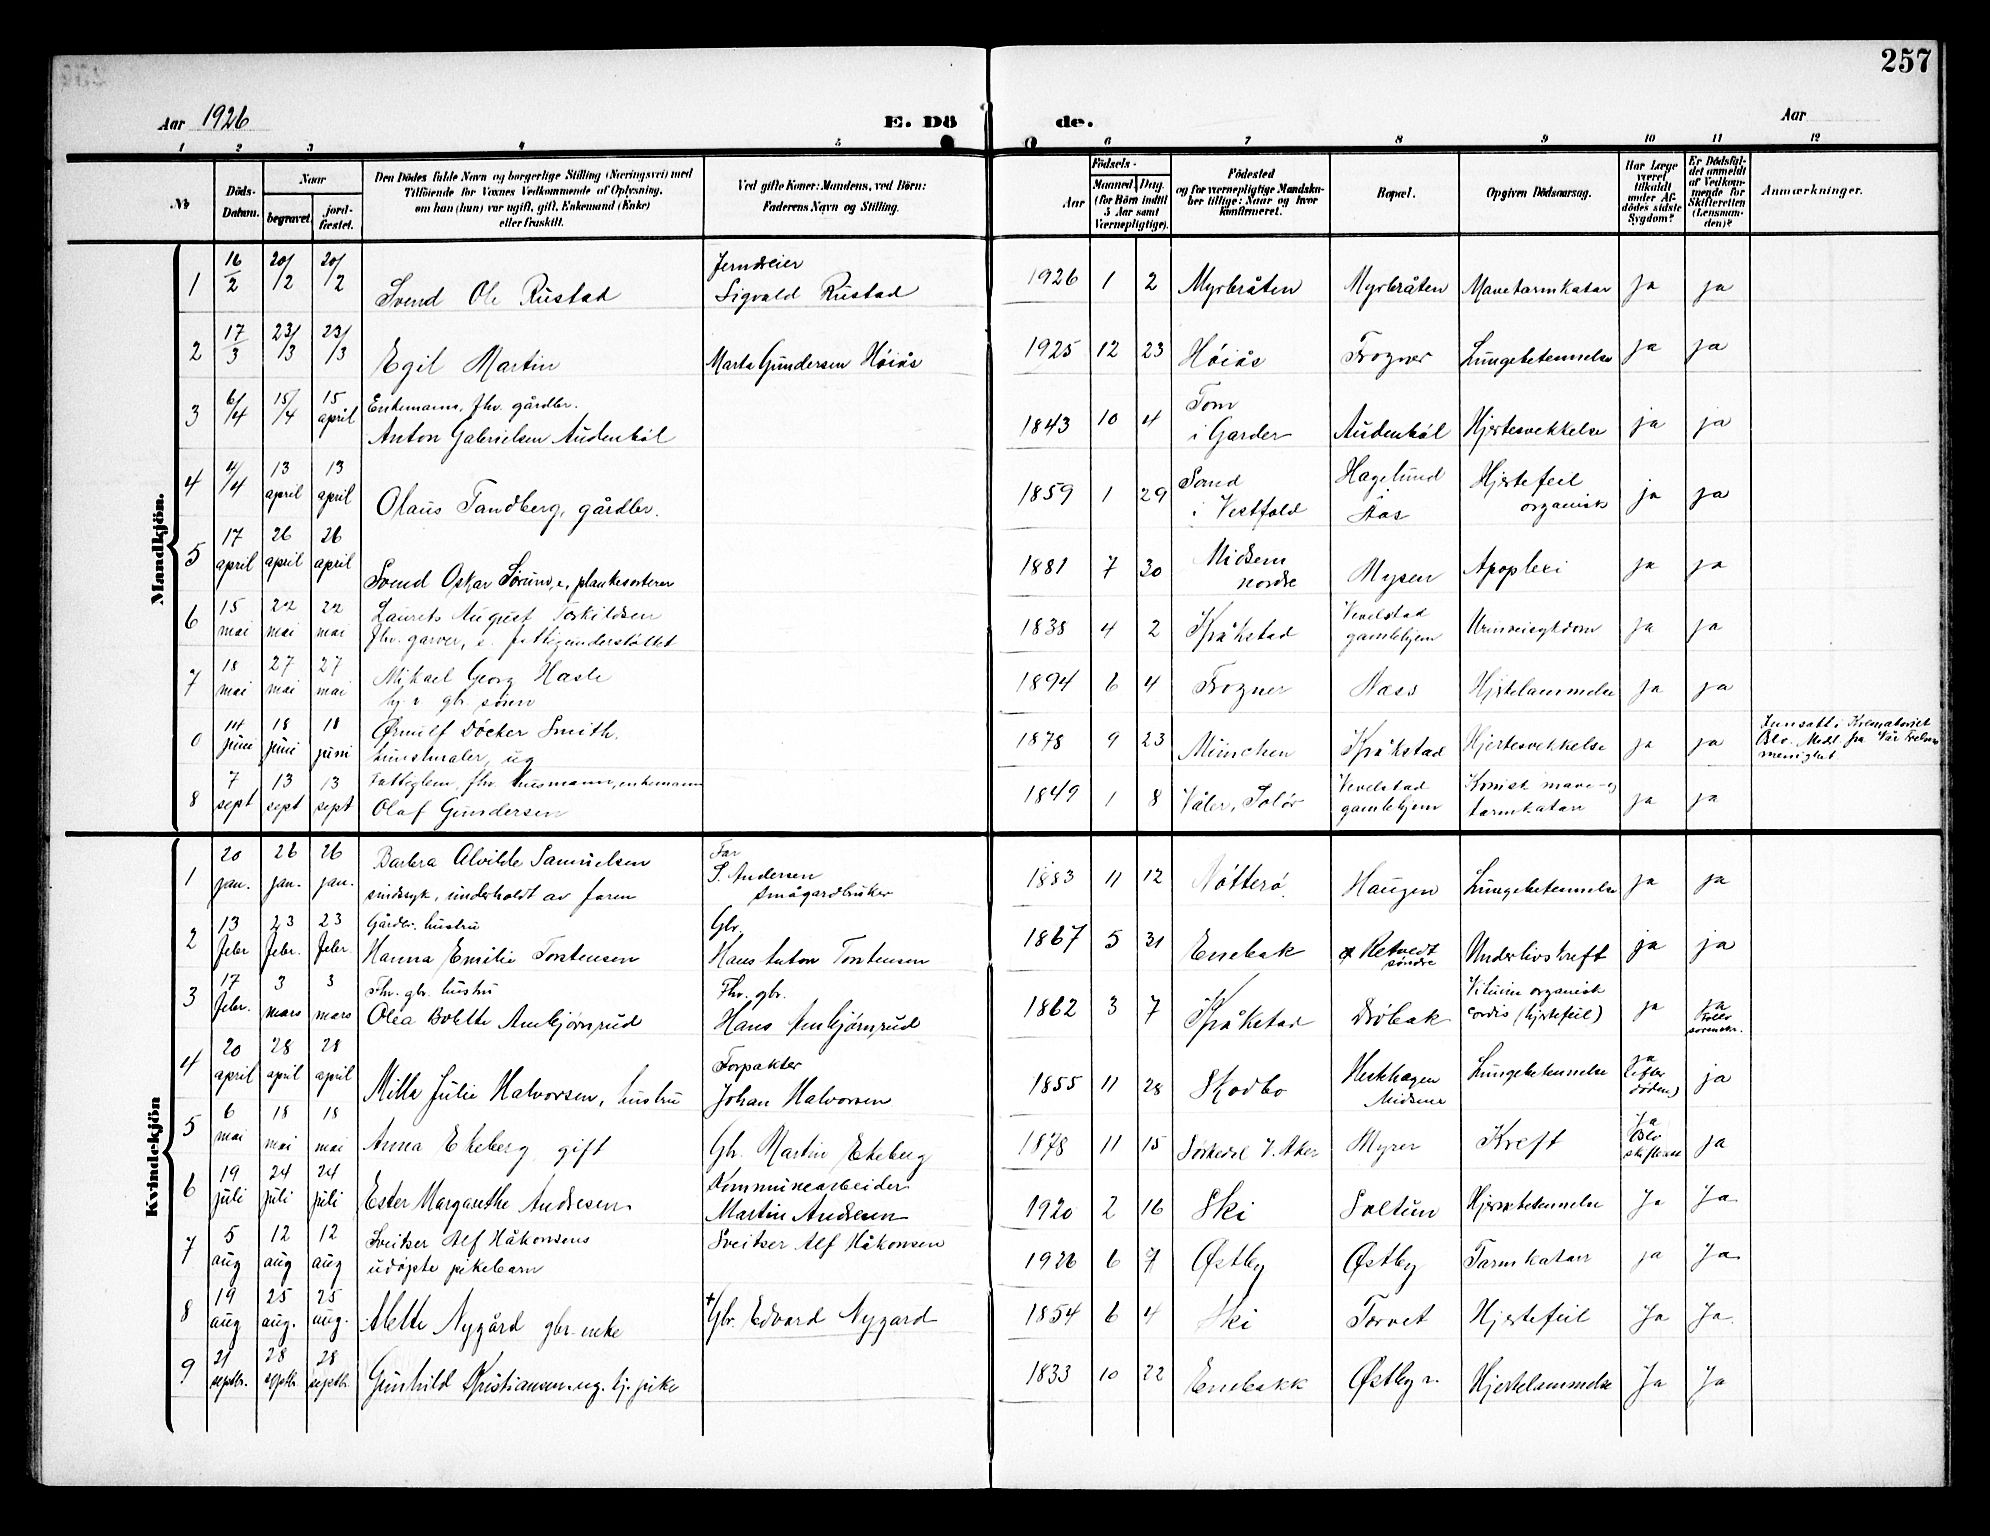 257
Aar 1926
E. Dö de.
Aar
1 2 3 4 5 6 7 8 9 10 11 12
№
Döds-Datum.
Naar
begravet.
jord-fæstet.
Den Dödes fulde Navn og borgerlige Stilling (Næringsvei) med
Tilföiende for Voxnes Vedkommende af Oplysning,
om han (hun) var ugift, gift, Enkemand (Enke)
eller fraskilt.
Ved gifte Koner: Mandens, ved Börn:
Faderens Navn og Stilling.
Födsels-
Aar
Maaned Dag
(for Börn indtil
5 Aar samt
Værnepligtige).
Födested
og for værnepligtige Mandskaber tillige: Naar og hvor konfirmeret.
Bopæl.
Opgiven Dödsaarsag.
Har Læge været tilkaldt under Afdödes sidste Sygdom?
Er Dödsfaldet anmeldt af Vedkommende for Skifteretten (Lensmanden)?
Anmærkninger.
Mandkjön.
1 16/2 20/2 20/2 Svend Ole Rustad Jerndreier Sigvald Rustad 1926 1 2 Myrbråten Myrbråten Mavetarmkatar ja ja
2 17/3 23/3 23/3 Egil Martin Marta Gundersen Høiås 1925 12 23 Høiås Frogner Lungebetennelse ja ja
3 6/4 15/4 15 april Enkemann, fhv. gårdbr. Anton Gabrielsen Audenbøl 1843 10 4 Tom i Garder Audenbøl Hjertesvekkelse ja ja
4 4/4 13 april 13 april Olaus Tandberg, gårdbr. 1859 1 29 Sand i Vestfold Hagelund Aas Hjertefeil organisk ja ja
5 17 april 26 april 26 april Svend Oskar plankesorterer 1881 7 30 Midsem nordre Mysen Apoplexi ja ja
6 15 mai 22 mai 22 mai Laurits August Torkildsen fhv. garver, fattigunderstøttet 1838 4 2 Kråkstad Vevelstad gamlehjem Urinveisykdom ja ja
7 18 mai 27 mai 27 mai Mikael Georg Hasle gbr sønn 1894 6 4 Frogner Næss Hjertelammelse ja ja
0 14 juni 18 juni 18 juni Ørnulf Döcker Smith. kunstmaler, ug 1878 9 23 München Kråkstad Hjertesvekkelse ja ja Innsatt i Krematoriet Medl. fra Vår Frelsers menighet
8 7 sept 13 sept 13 sept Fattiglem, fhv. husmann, enkemann Olaf Gundersen 1849 1 8 Våler, Solør Vevelstad gamlehjem Kronisk mave- og tarmkatarr ja ja
Kvindekjön
1 20 jan. 26 jan. 26 jan. Barbra Alvilde Samuelsen sindssyk, underholdt av faren Far S. Andersen Småगardbruker 1883 11 12 Nøtterø Haugen Lungebetennelse ja ja
2 13 febr 23 febr. 23 febr Gårdbr. hustru Hanna Emilie Torstensen Gbr. Hans Anton Torstensen 1867 5 31 Enebak Retvedt søndre Underlivskreft ja ja
3 17 febr. 3 mars 3 mars Fhv. gbr. hustru Olea Bolette Arnbjørnrud Fhv. gbr. Hans Arnbjørnrud 1862 3 7 Kråkstad Drøbak Vitium organisk cordis (hjertefeil) ja ja
4 20 april 28 april 28 april Milla Julie Halvorsen, hustru Forpakter Johan Halvorsen 1855 11 28 Skodbo Heckhagen Midsem Lungebetennelse ja (efter døden) ja
5 6 mai 18 mai 18 mai Anna Ekeberg gift Gbr. Martin Ekeberg 1878 11 15 Sørkedal V. Aker Myrer Kreft Ja ja
6 19 juli 24 juli 24 juli Ester Margarethe Andresen Kommunearbeider Martin Andresen 1920 2 16 Ski Soltun Hjernebetennelse Ja Ja
7 5 aug 12 aug 12 aug Sveitser Alf Håkonsens udøpte pikebarn Sveitser Alf Håkonsen 1926 6 7 Østby Østby Tarmkatarr ja Ja
8 19 aug 25 aug. 25 aug. Alette Nygård gbr. enke + Gbr. Edvard Nygard 1854 6 4 Ski Torvet Hjertefeil Ja Ja.
9 21 septbr. 28 septbr. 28 septbr. Gunhild Kristiansen ug. tj. pike 1833 10 22 Enebakk Østby n. Hjertelammelse Ja Ja